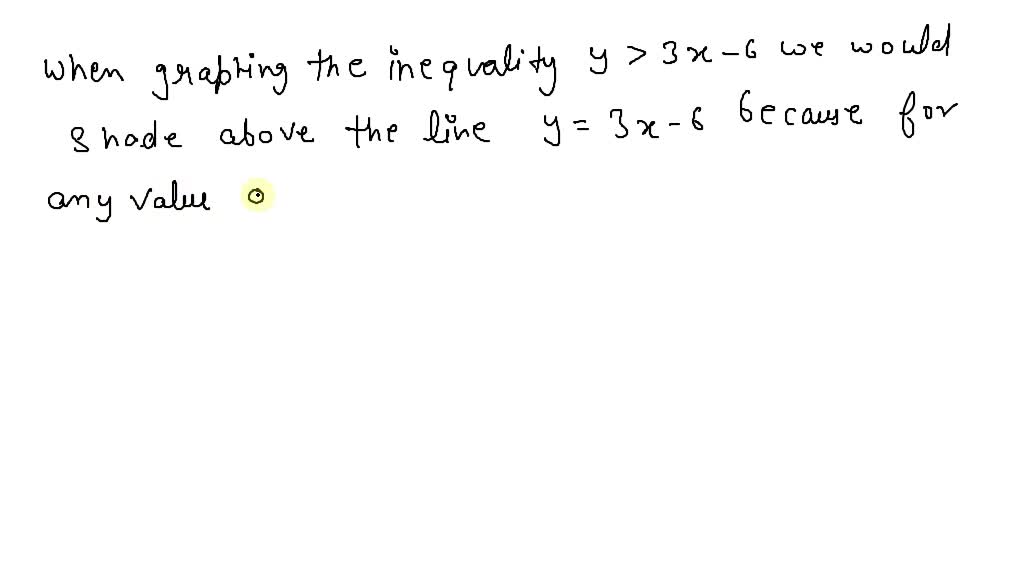 When graphing the inequality y > 3x - 6 we would
shade above the line y = 3x - 6 because for
any value o